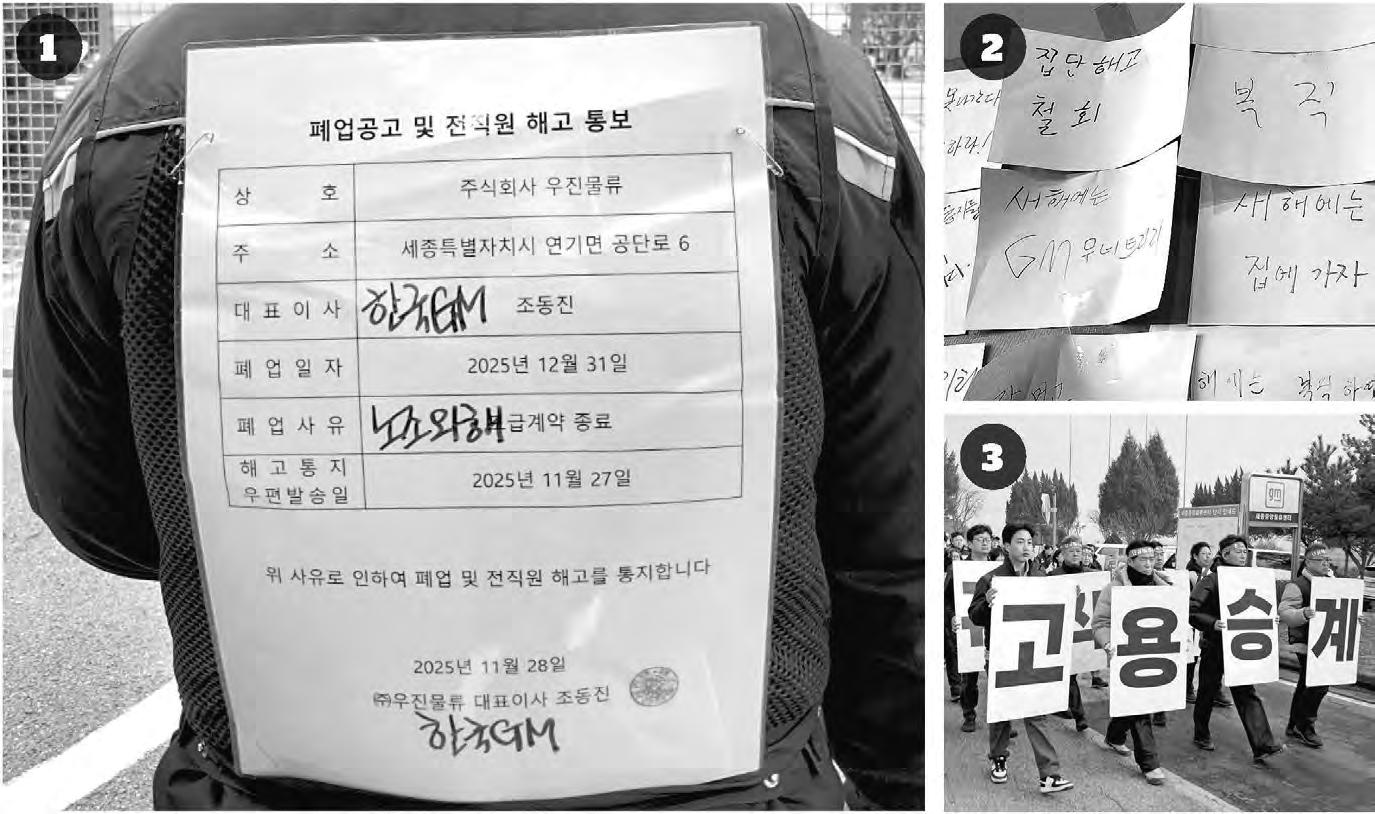 1
폐업공고 및 전직원 해고 통보
상 호 주식회사 우진물류
주 소 세종특별자치시 연기면 공단로 6
대 표 이 사 한국GM 조동진
폐 업 일 자 2025년 12월 31일
폐 업 사 유 노조와해 급계약 종료
해 고 통 지
우편발송일 2025년 11월 27일
위 사유로 인하여 폐업 및 전직원 해고를 통지합니다
2025년 11월 28일
㈜우진물류 대표이사 조동진
한국GM
2
집단해고
철회
복직
하라!
새해에는
GM 무너트리기
새해에는
집에 가자
해에는 복직하
3
gm
고용승계